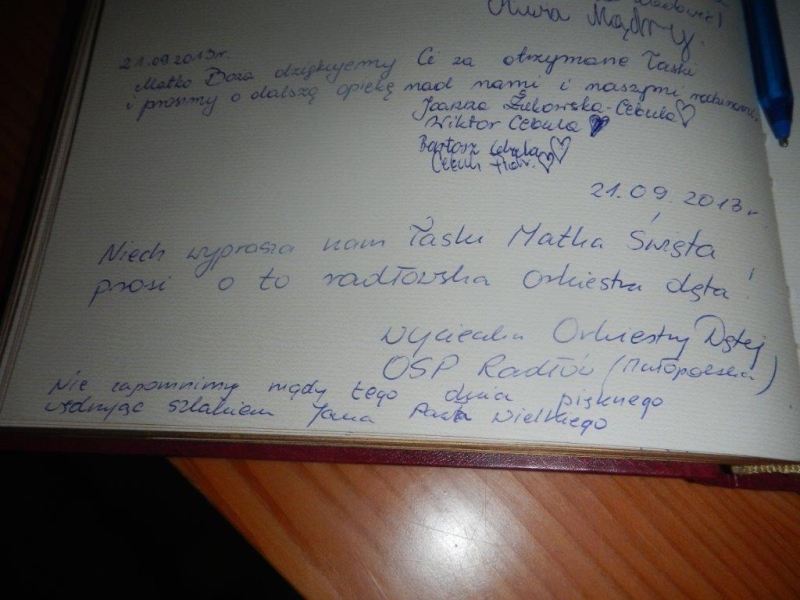 Mądry.
21.09.2013r.
Matko Boża dziękujemy Ci za otrzymane łaski
i prosimy o dalszą opiekę nad nami i naszymi
Joanna Żukowska-Cebula
Wiktor Cebula
Bartosz Cebula
21.09.2013r
Niech wyprasza nam łaski Matka Święta
prosi o to radłowska orkiestra dęta!
Wycieczka Orkiestry Dętej
OSP Radłów (Małopolska)
Nie zapomnimy nigdy tego dnia pięknego
wędrując szlakiem Jana Pawła Wielkiego